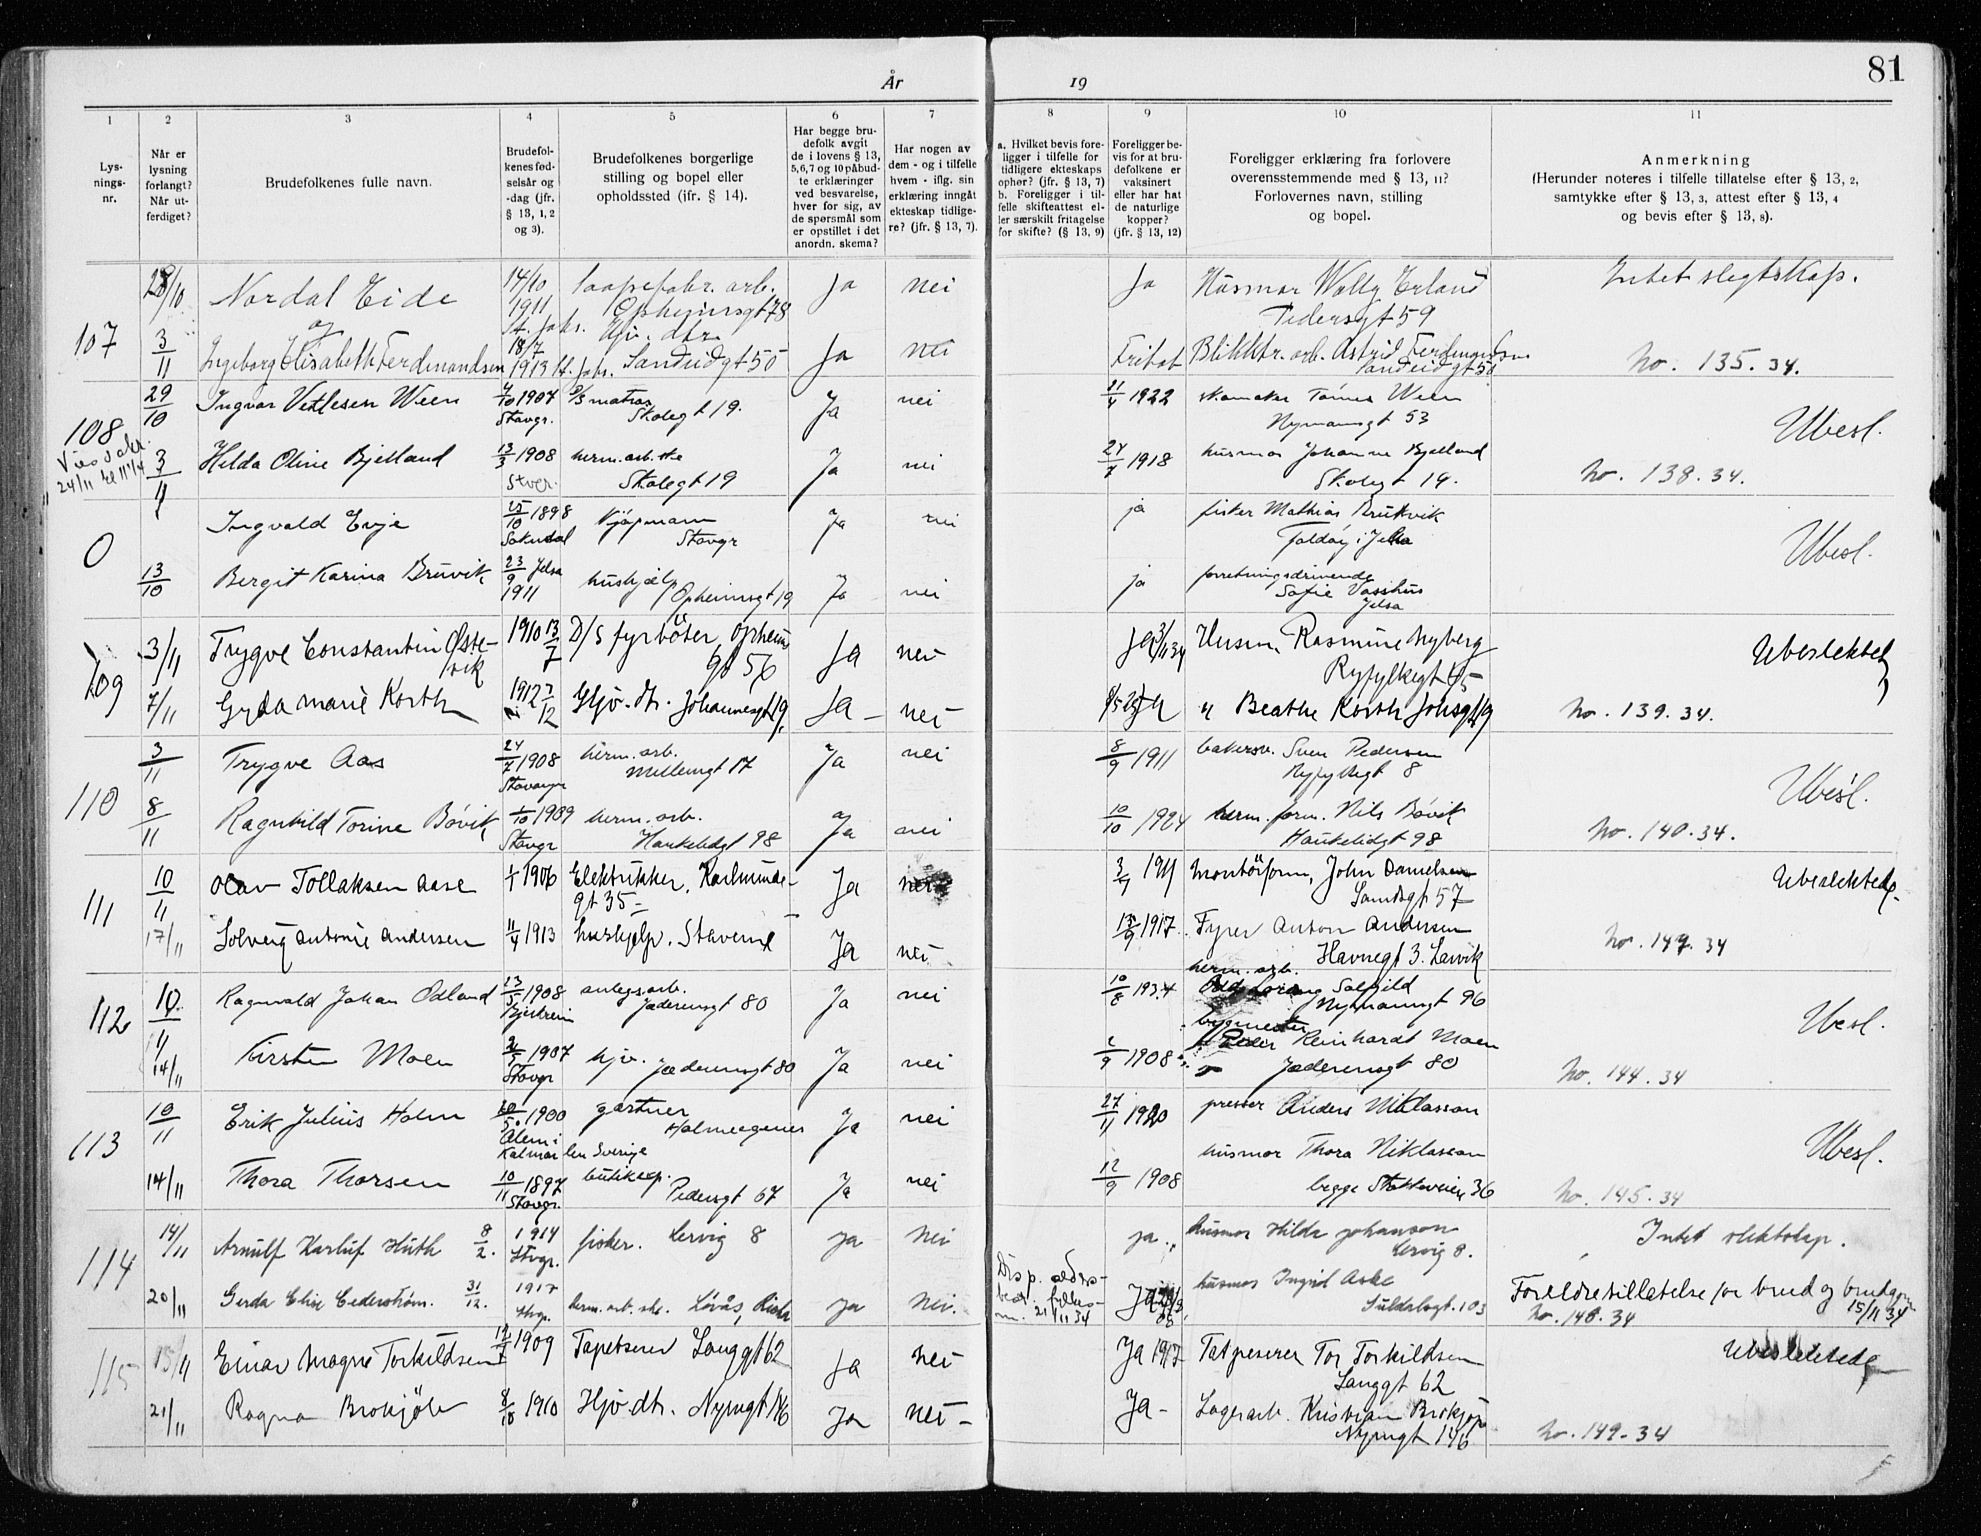 81
År 19
1 2 3 4 5 6 7 8 9 10 11
Lys-
nings-
nr.
Når er
lysning
forlangt?
Når ut-
ferdiget?
Brudefolkenes fulle navn.
Brudefol-
kenes fød-
selsår og
-dag (jfr.
§ 13, 1, 2
og 3).
Brudefolkenes borgerlige
stilling og bopel eller
opholdssted (ifr. § 14).
Har begge bru-
defolk avgit
de i lovens § 13,
5,6,7 og 10 påbud-
te erklæringer
ved besvarelse,
hver for sig, av
de spørsmål som
er opstillet i det
anordn. skema?
Har nogen av
dem - og i tilfelle
hvem - iflg. sin
erklæring inngått
ekteskap tidlige-
re? (jfr. § 13, 7).
a. Hvilket bevis fore-
ligger i tilfelle for
tidligere ekteskaps
ophør? (jfr. § 13, 7)
b. Foreligger i til-
felle skifteattest el-
ler særskilt fritagelse
for skifte? (§ 13, 9)
Foreligger be-
vis for at bru-
defolkene er
vaksinert
eller har hat
de naturlige
kopper?
(jfr. § 13, 12)
Foreligger erklæring fra forlovere
overensstemmende med § 13, 11?
Forlovernes navn, stilling
og bopel.
Anmerkning
(Herunder noteres i tilfelle tillatelse efter § 13, 2,
samtykke efter § 13, 3, attest efter § 13, 4
og bevis efter § 13, 8).
107
Nordal Eide 14/10 1911 Opheimsgt 78 Ja nei Ja Husmor Wally Erland Pedersgt 59 Intet slegtskap.
og
3/11 Ingeborg Elisabeth Ferdinandsen 18/7 1913 Hjv. dtr. Sandeidgt 50 Ja nei Fritat Astrid Ferdinandsen Sandeidgt 50 No. 135.34.
108
29/10 Ingvar Vetlesen Ween 1907 Stavgr. D/S matros Skolegt 19. Ja nei 1922 skomaker Tønnes Ween Nymansgt 53 Ubesl.
3/11 Hilda Oline Bjelland 13/3 1908 herm. arb.ske Skolegt 19 Ja nei 1918 husmor Johanne Bjelland Skolegt 19. No. 138.34.
0
Ingvald Evje 1898 Kjøpmann Stavgr Ja nei ja fisker Mathias Bruvik Foldøy i Jelsa Ubesl.
13/10 Bergit Karina Bruvik 23/9 Jelsa 1911 hushjelp Opheimsgt 19 Ja nei ja forretningsdrivende Sofie Vasshus Jelsa
109
3/11 Trygve Constantin Østevik 1910 13/7 D/S fyrböter, Opheimsgt 56 Ja nei Ja Husm. Rasmine Nyberg Ryfylkegt Ubeslektet
7/11 Gyda Marie Korth 1912 7/12 Hjv. dtr. Johannesgt 19. Ja nei " Beathe Korth Johsgt 19 No. 139.34.
110
3/11 Trygve Aas 24/7 1908 Stavanger herm. arb. Møllegt 17 Ja nei 8/9 1911 bakersv. Sven Pedersen Ryfylkegt 8 Ubesl.
8/11 Ragnhild Torine Bøvik 1/10 1909 Stavgr herm. arb. Haukeligt 98 Ja nei 10/10 1924 herm. form. Nils Bøvik Haukeligt 98 No. 140.34.
111
10/11 Olav Tollaksen Aase 1/1 1906 Elektrikker, Karlmindegt 35 Ja nei Montörform, John Danielsen Sandsgt 57 Ubeslektede.
17/11 Solveig Antonie Andersen 11/4 1913 hushjelp. Stavern Ja nei 1917. Fyrer Anton Andersen Havnegt 3. Larvik No. 147.34
112
10/11 Ragnvald Johan Odland 13/5 1908 anlegsarb. Jæderensgt 80 Ja nei 10/8 1934 herm. arb. Solgild Nymannsgt 96 Ubesl.
14/11 Kirsten Moen 1907 Stavgr hjv. Jæderensgt 80 Ja nei 1908 bygmester Peder Reinhardt Moen Jæderensgt 80 No. 144.34
113
10/11 Erik Julius Holm 1900 Ålem i Kalmar len Sverige gartner Holmeegenes Ja nei 27/11 1920 presser Anders Niklasson Ubesl.
14/11 Thora Thorsen 10/11 1897 Stavgr. butikeksp. Pedersgt 67 Ja nei 12/9 1908 husmor Thora Niklasson begge Stokkaveien 36 No. 145.34
114
14/11 Arnulf Karluf Huth 8/2. 1914 Stvgr. fisker. Lervig 8 ja Nei ja. husmor Hilda Johanson Lervig 8. Intet slektskap.
20/11 Gerda Elise Cederstrøm. 31/12. 1917 herm. arb. ske. Ja Nei. Disp. alders- 21/11 34 Ja husmor Ingrid Aske Suldalsgt. 103 Foreldretillatelse for brud og brudgom 15/11 34
No. 148.34
115
15/11 Einar Magne Torkildsen 1909 Tapetserer Langgt 62 Ja nei Ja 1917 Tapeserer Tor Torkildsen Langgt 62 Ubeslektede
21/11 Ragna Brokjöb 8/10 1910 Hjv. dtr. Nymgt 146 Ja nei Ja Lagerarb. Kristian Brokjøb Nymgt 146 No. 149-34